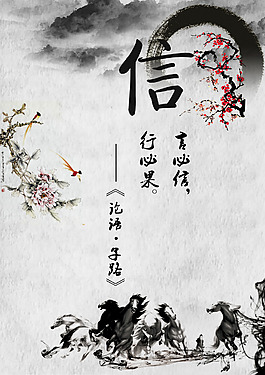 信
言必信，
行必果。
——《论语·子路》